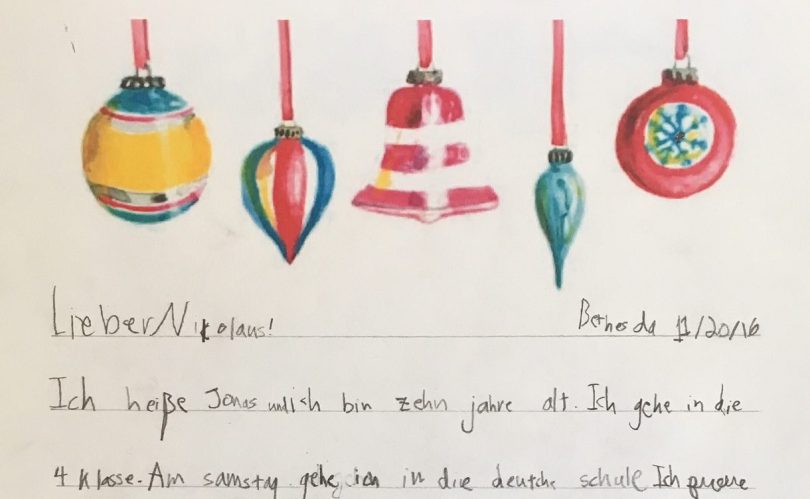 Lieber Nikolaus! Bethesda 11/20/16
Ich heiße Jonas und ich bin zehn jahre alt. Ich gehe in die
4 Klasse. Am samstag gehe ich in die deutche schule Ich